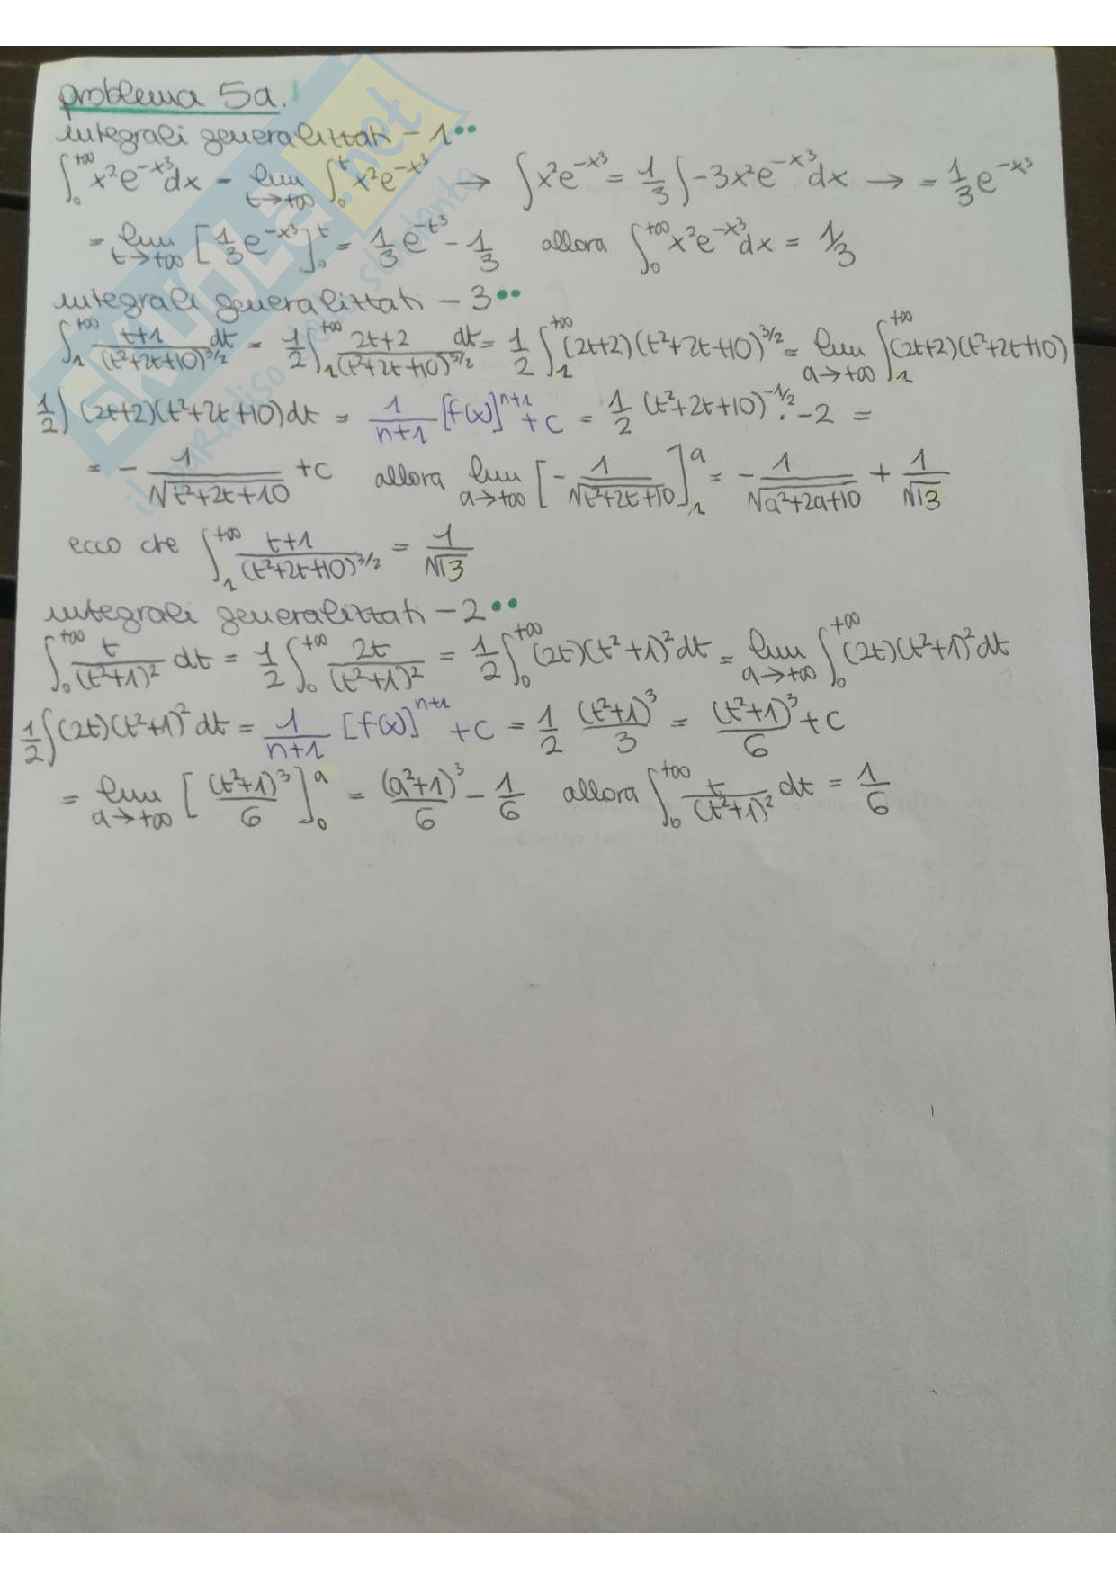 problema 5a.
integrali generalizzati - 1••
∫₀^{+∞} x²e^{-x³}dx = lim_{t→+∞} ∫₀^t x²e^{-x³} → ∫x²e^{-x³} = 1/3 ∫-3x²e^{-x³}dx → = 1/3 e^{-x³}
= lim_{t→+∞} [1/3 e^{-x³}]₀^t = 1/3 e^{-t³} - 1/3 allora ∫₀^{+∞} x²e^{-x³}dx = 1/3
integrali generalizzati - 3••
∫₁^{+∞} t+1/(t²+2t+10)^{3/2} dt = 1/2 ∫₁^{+∞} 2t+2/(t²+2t+10)^{3/2} dt = 1/2 ∫₁^{+∞} (2t+2)(t²+2t+10)^{3/2} = lim_{a→+∞} ∫₁^{+∞} (2t+2)(t²+2t+10)
1/2 ∫(2t+2)(t²+2t+10)dt = 1/(n+1) [f(x)]^{n+1} + c = 1/2 (t²+2t+10)^{-1/2} · -2 =
= - 1/√(t²+2t+10) + c allora lim_{a→+∞} [- 1/√(t²+2t+10)]₁^a = - 1/√(a²+2a+10) + 1/√13
ecco che ∫₁^{+∞} t+1/(t²+2t+10)^{3/2} = 1/√13
integrali generalizzati - 2••
∫₀^{+∞} t/(t²+1)² dt = 1/2 ∫₀^{+∞} 2t/(t²+1)² = 1/2 ∫₀^{+∞} (2t)(t²+1)² dt = lim_{a→+∞} ∫₀^{+∞} (2t)(t²+1)² dt
1/2 ∫(2t)(t²+1)² dt = 1/(n+1) [f(x)]^{n+1} + c = 1/2 (t²+1)³/3 = (t²+1)³/6 + c
= lim_{a→+∞} [(t²+1)³/6]₀^a = (a²+1)³/6 - 1/6 allora ∫₀^{+∞} t/(t²+1)² dt = 1/6
SKUOLA.net